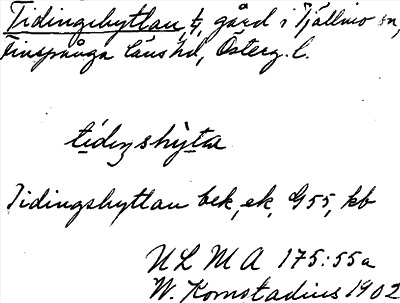 Tidingshyttan, t, gård i Tjällmo sn,
Finspånga läns hd, Österg. l.
tídiŋshỳta
Tidingshyttan bek, ek, G55, kb
ULMA 175:55a
W. Kornstadius 1902